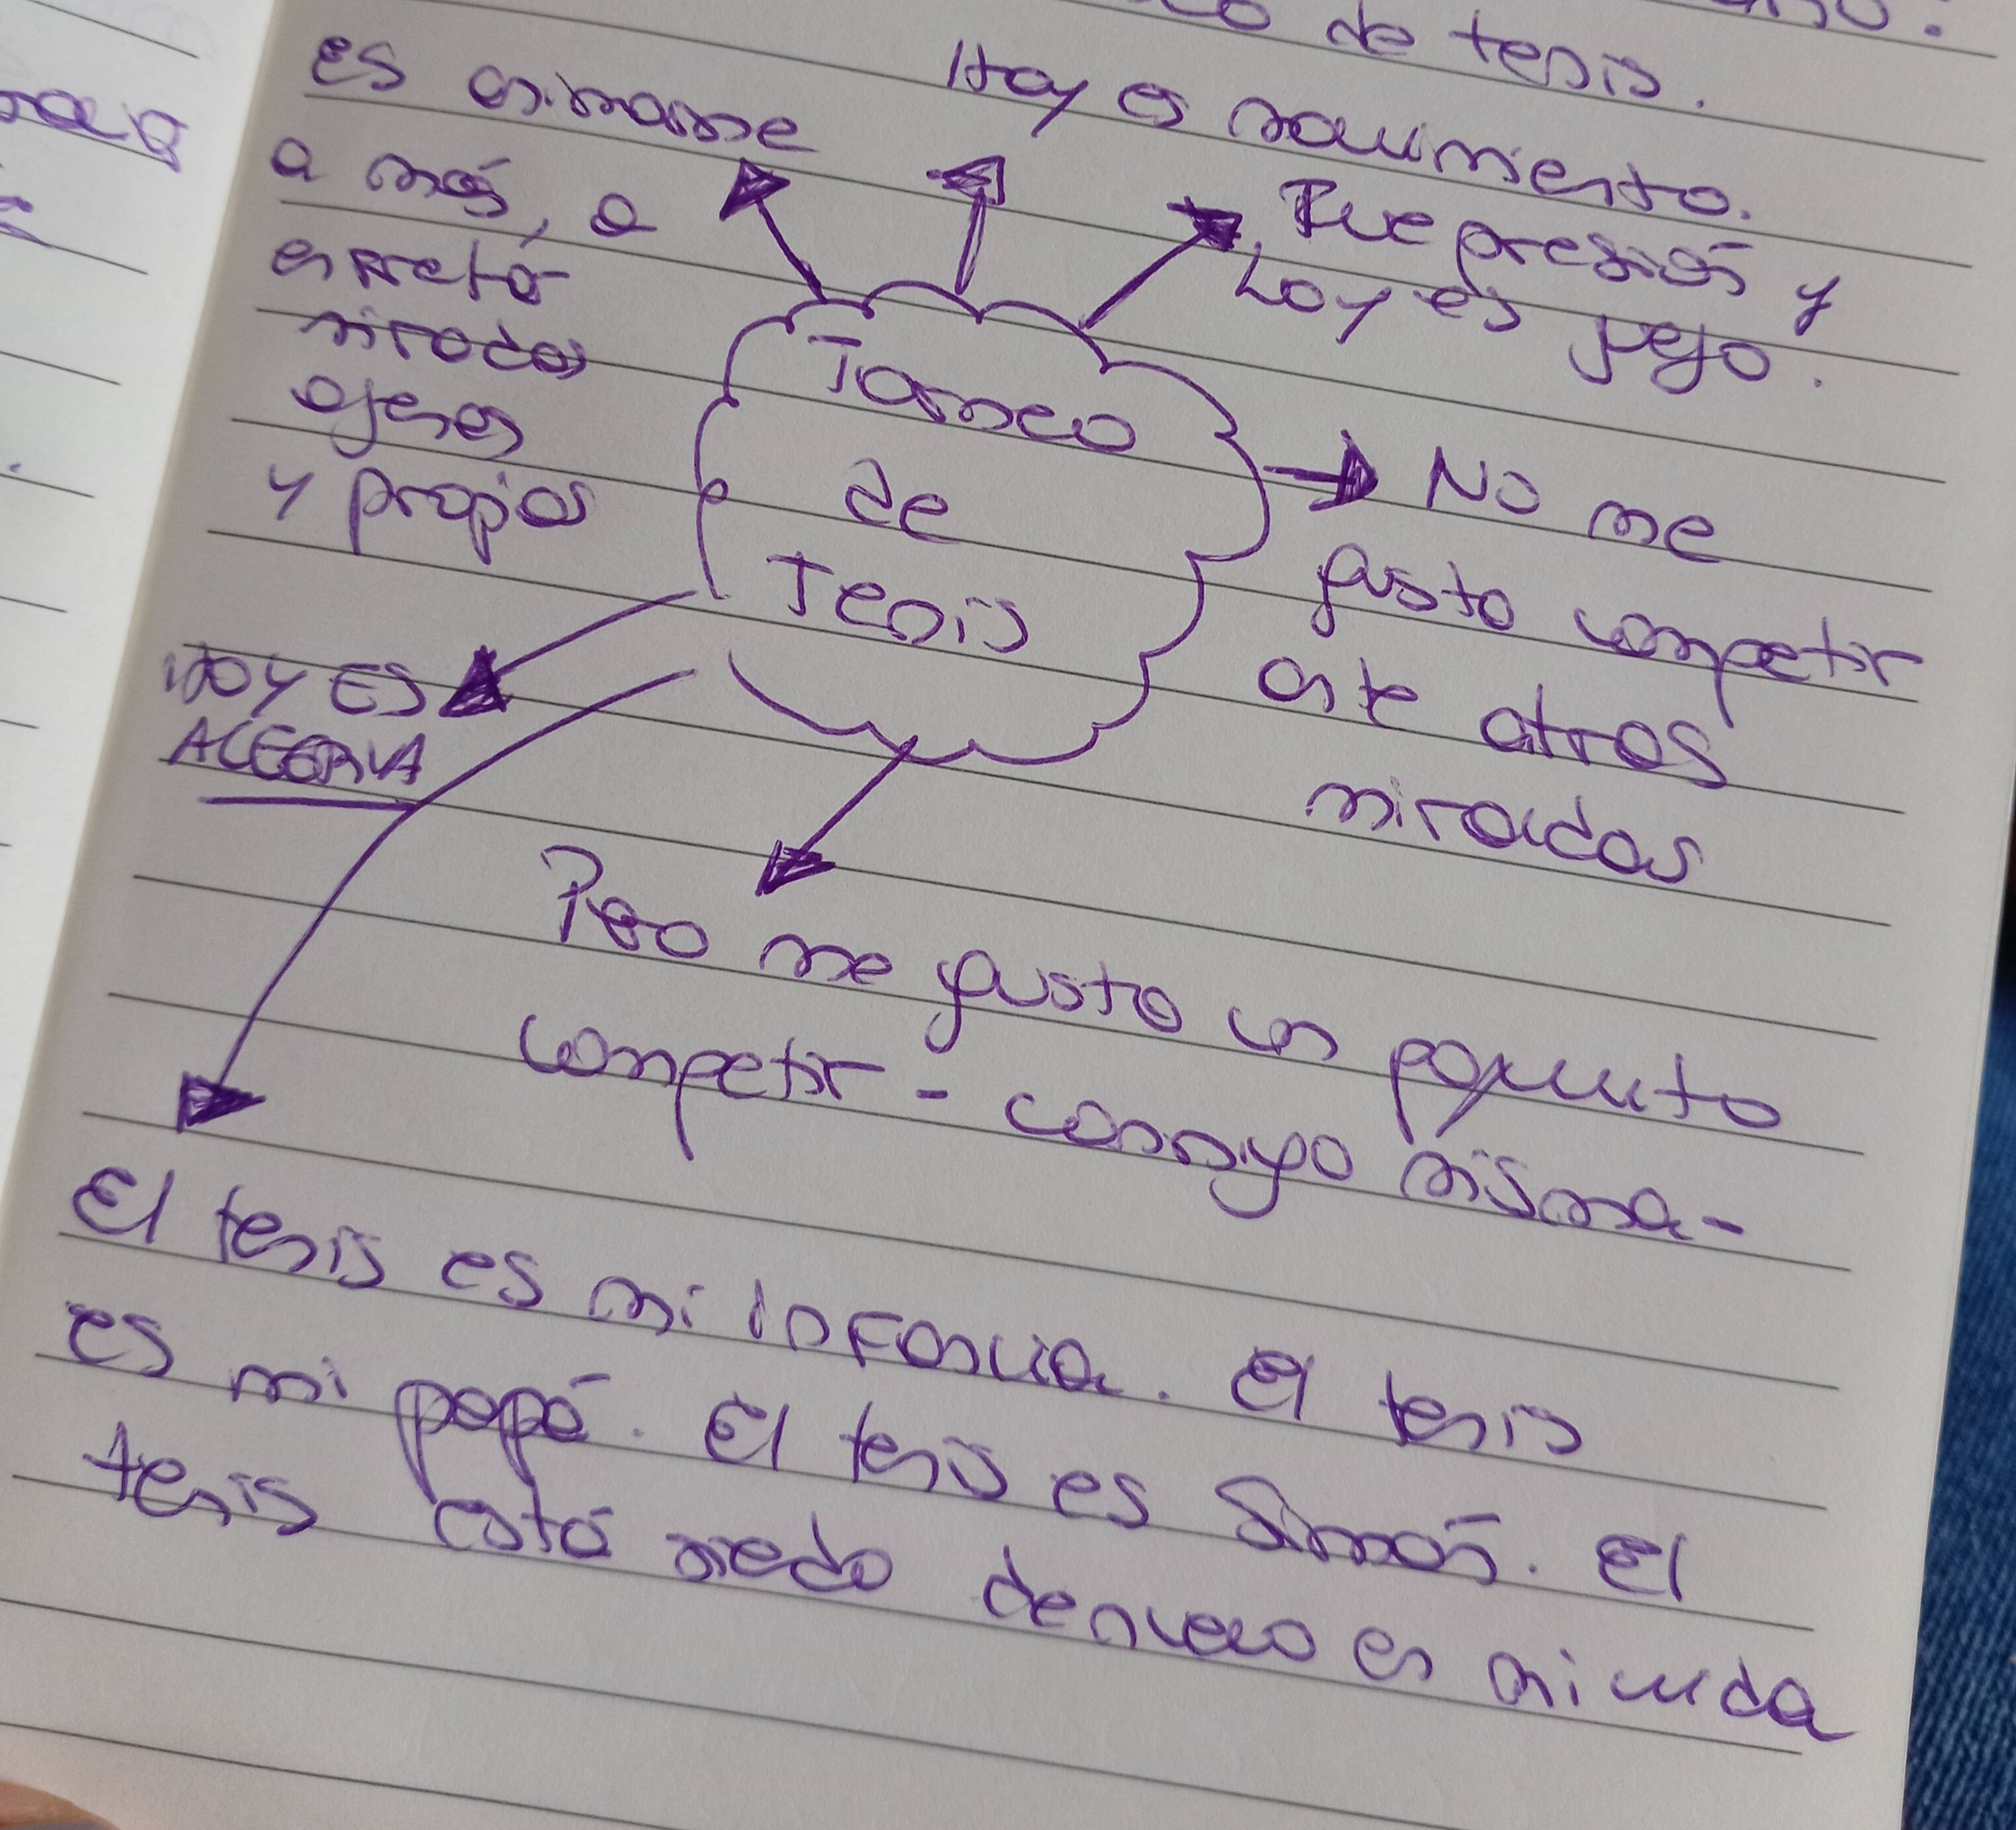 de tenis.
Hoy es movimiento.
es animarse
a más, a
enfretá
miradas
ajenas
y propias
Fue presión y
hoy es juego.
Torneo
de
Tenis
No me
gusta competir
ante otras
miradas
HOY ES
ALEGRIA
Pero me gusta un poquito
competir - conmigo misma -
El tenis es mi infancia. El tenis
es mi papá. El tenis es Simón. El
tenis está siedo de nuevo en mi vida